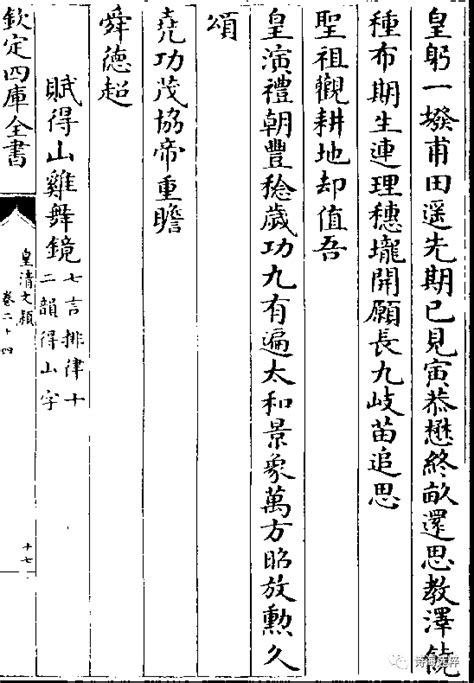 皇躬一墢甫田遥先期已見寅恭懋終畝還思教澤饒
種布期生連理穗壠開願長九岐苗追思
聖祖觀耕地却值吾
皇演禮朝豐稔歲功九有遍太和景象萬方昭放勲久
頌
堯功茂協帝重瞻
舜德超
賦得山雞舞鏡七言排律十二韻得山字
欽定四庫全書
皇清文穎
卷二十四
十七